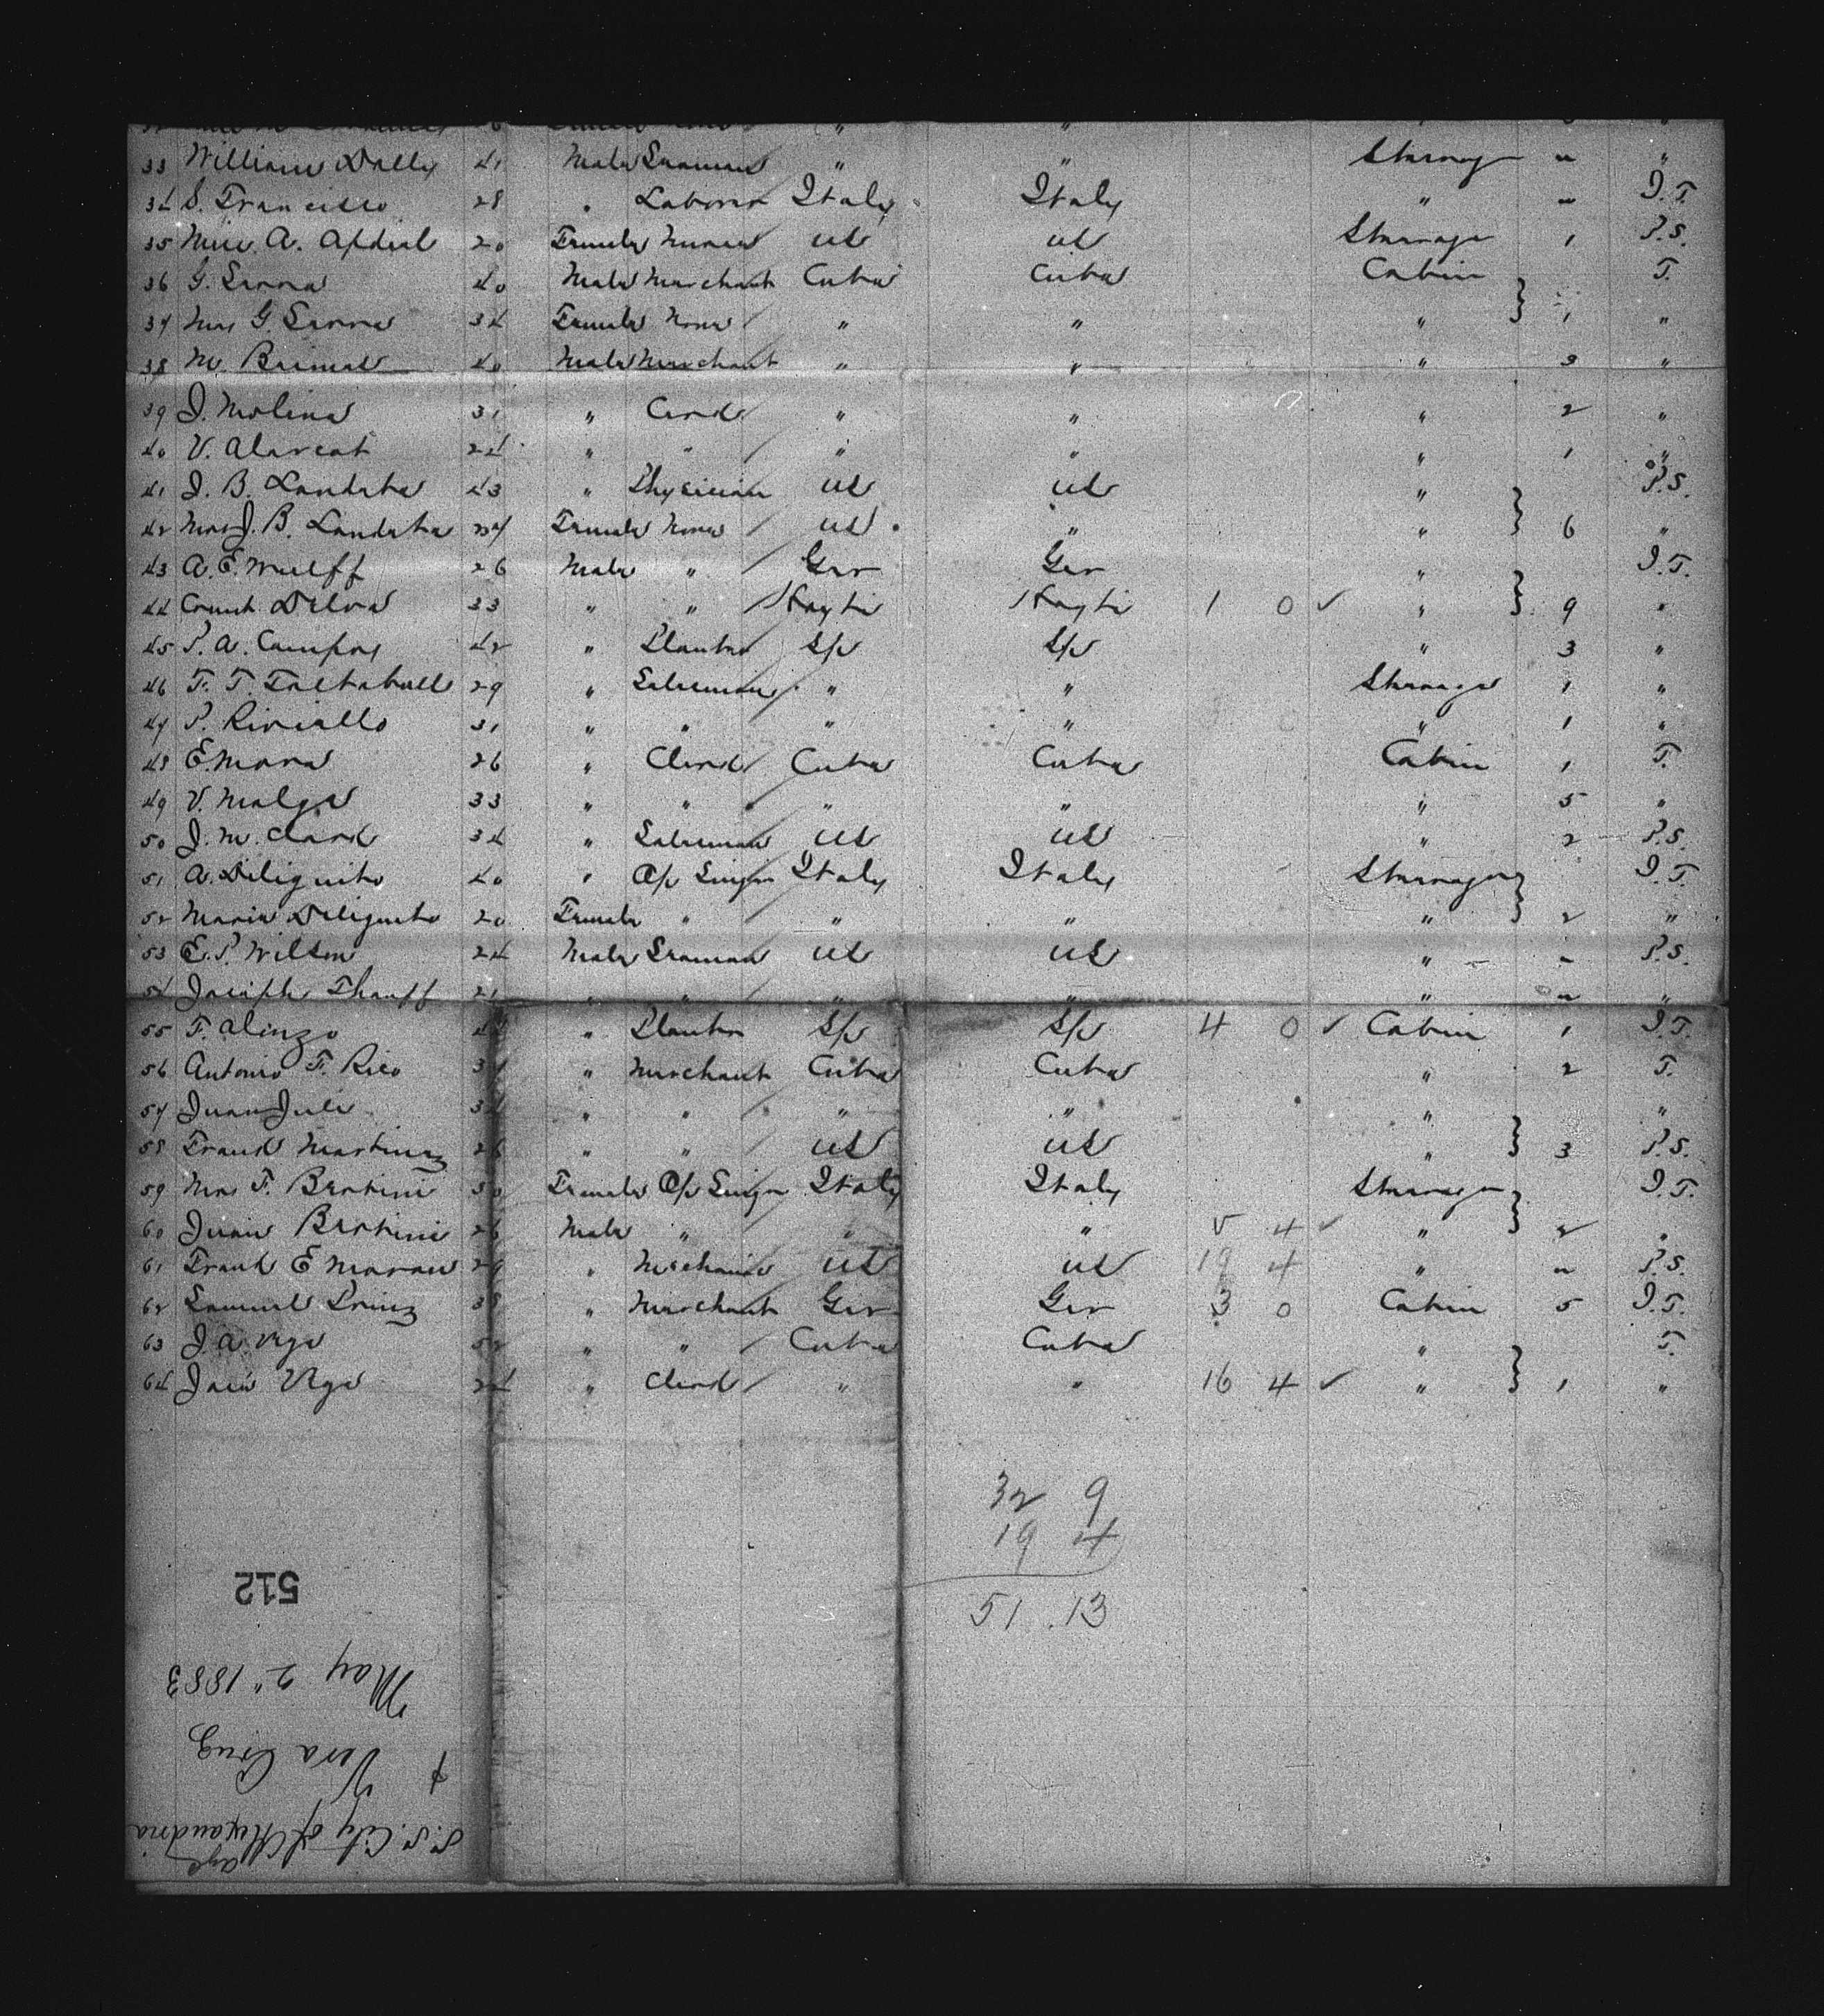 33 William Dally 41 Male Seaman " " Steerage — "
34 S. Francisco 28 " Laborer Italy Italy " — I.T.
35 Miss A. 20 Female Nurse US US Steerage 1 P.S.
36 G. Serra 40 Male Merchant Cuba Cuba Cabin T.
37 Mrs G. Serra 34 Female None " " " 1 "
38 M. 40 Male Merchant " " " 3 "
39 J. Molina 31 " Clerk " " " 2 "
40 V. 24 " " " " " 1 "
41 J. B. Landeta 43 " Physician US US " P.S.
42 Mrs J. B. Landeta 37 Female None US " " 6 "
43 A. E. Wulff 26 Male " Ger Ger " I.T.
44 Delva 33 " " Hayti Hayti 1 0 ✓ " 9 "
45 P. A. Campos 42 " Planter Sp Sp " 3 "
46 F. T. 29 " Salesman " " Steerage 1 "
47 P. 31 " " " " " 1 "
48 E. Mora 26 " Clerk Cuba Cuba Cabin 1 T.
49 V. Malga 33 " " " " " 5 "
50 J. M. Clark 34 " Salesman US US " 2 P.S.
51 A. Diliguito 40 " Op Singer Italy Italy Steerage I.T.
52 Maria Diliguito 20 Female " " " " 2 "
53 E. P. Wilson 24 Male Seaman US US " — P.S.
54 Joseph 21 " " " " " — "
55 F. Alonzo " Planter Sp Sp 4 0 ✓ Cabin 1 I.T.
56 Antonio F. Rico " Merchant Cuba Cuba " 2 T.
57 Juan Juli 34 " " " " " "
58 Frank Martinez 26 " " US US " 3 P.S.
59 Mrs F. Bertini 50 Female Op Singer Italy Italy Steerage I.T.
60 Juan Bertini 26 Male " " " 5 4 ✓ " 2 "
61 Frank E Moran 29 " Mechanic US US 19 4 " — P.S.
62 Samuel Prinz 38 " Merchant Ger Ger 3 0 Cabin 5 I.T.
63 J. A. Vega 52 " " Cuba Cuba " T.
64 Vega 24 " Clerk " " 16 4 ✓ " 1 "
32 9
19 4
51 13
512
May 2" 1883
Vera Cruz
S.S. City of Alexandria